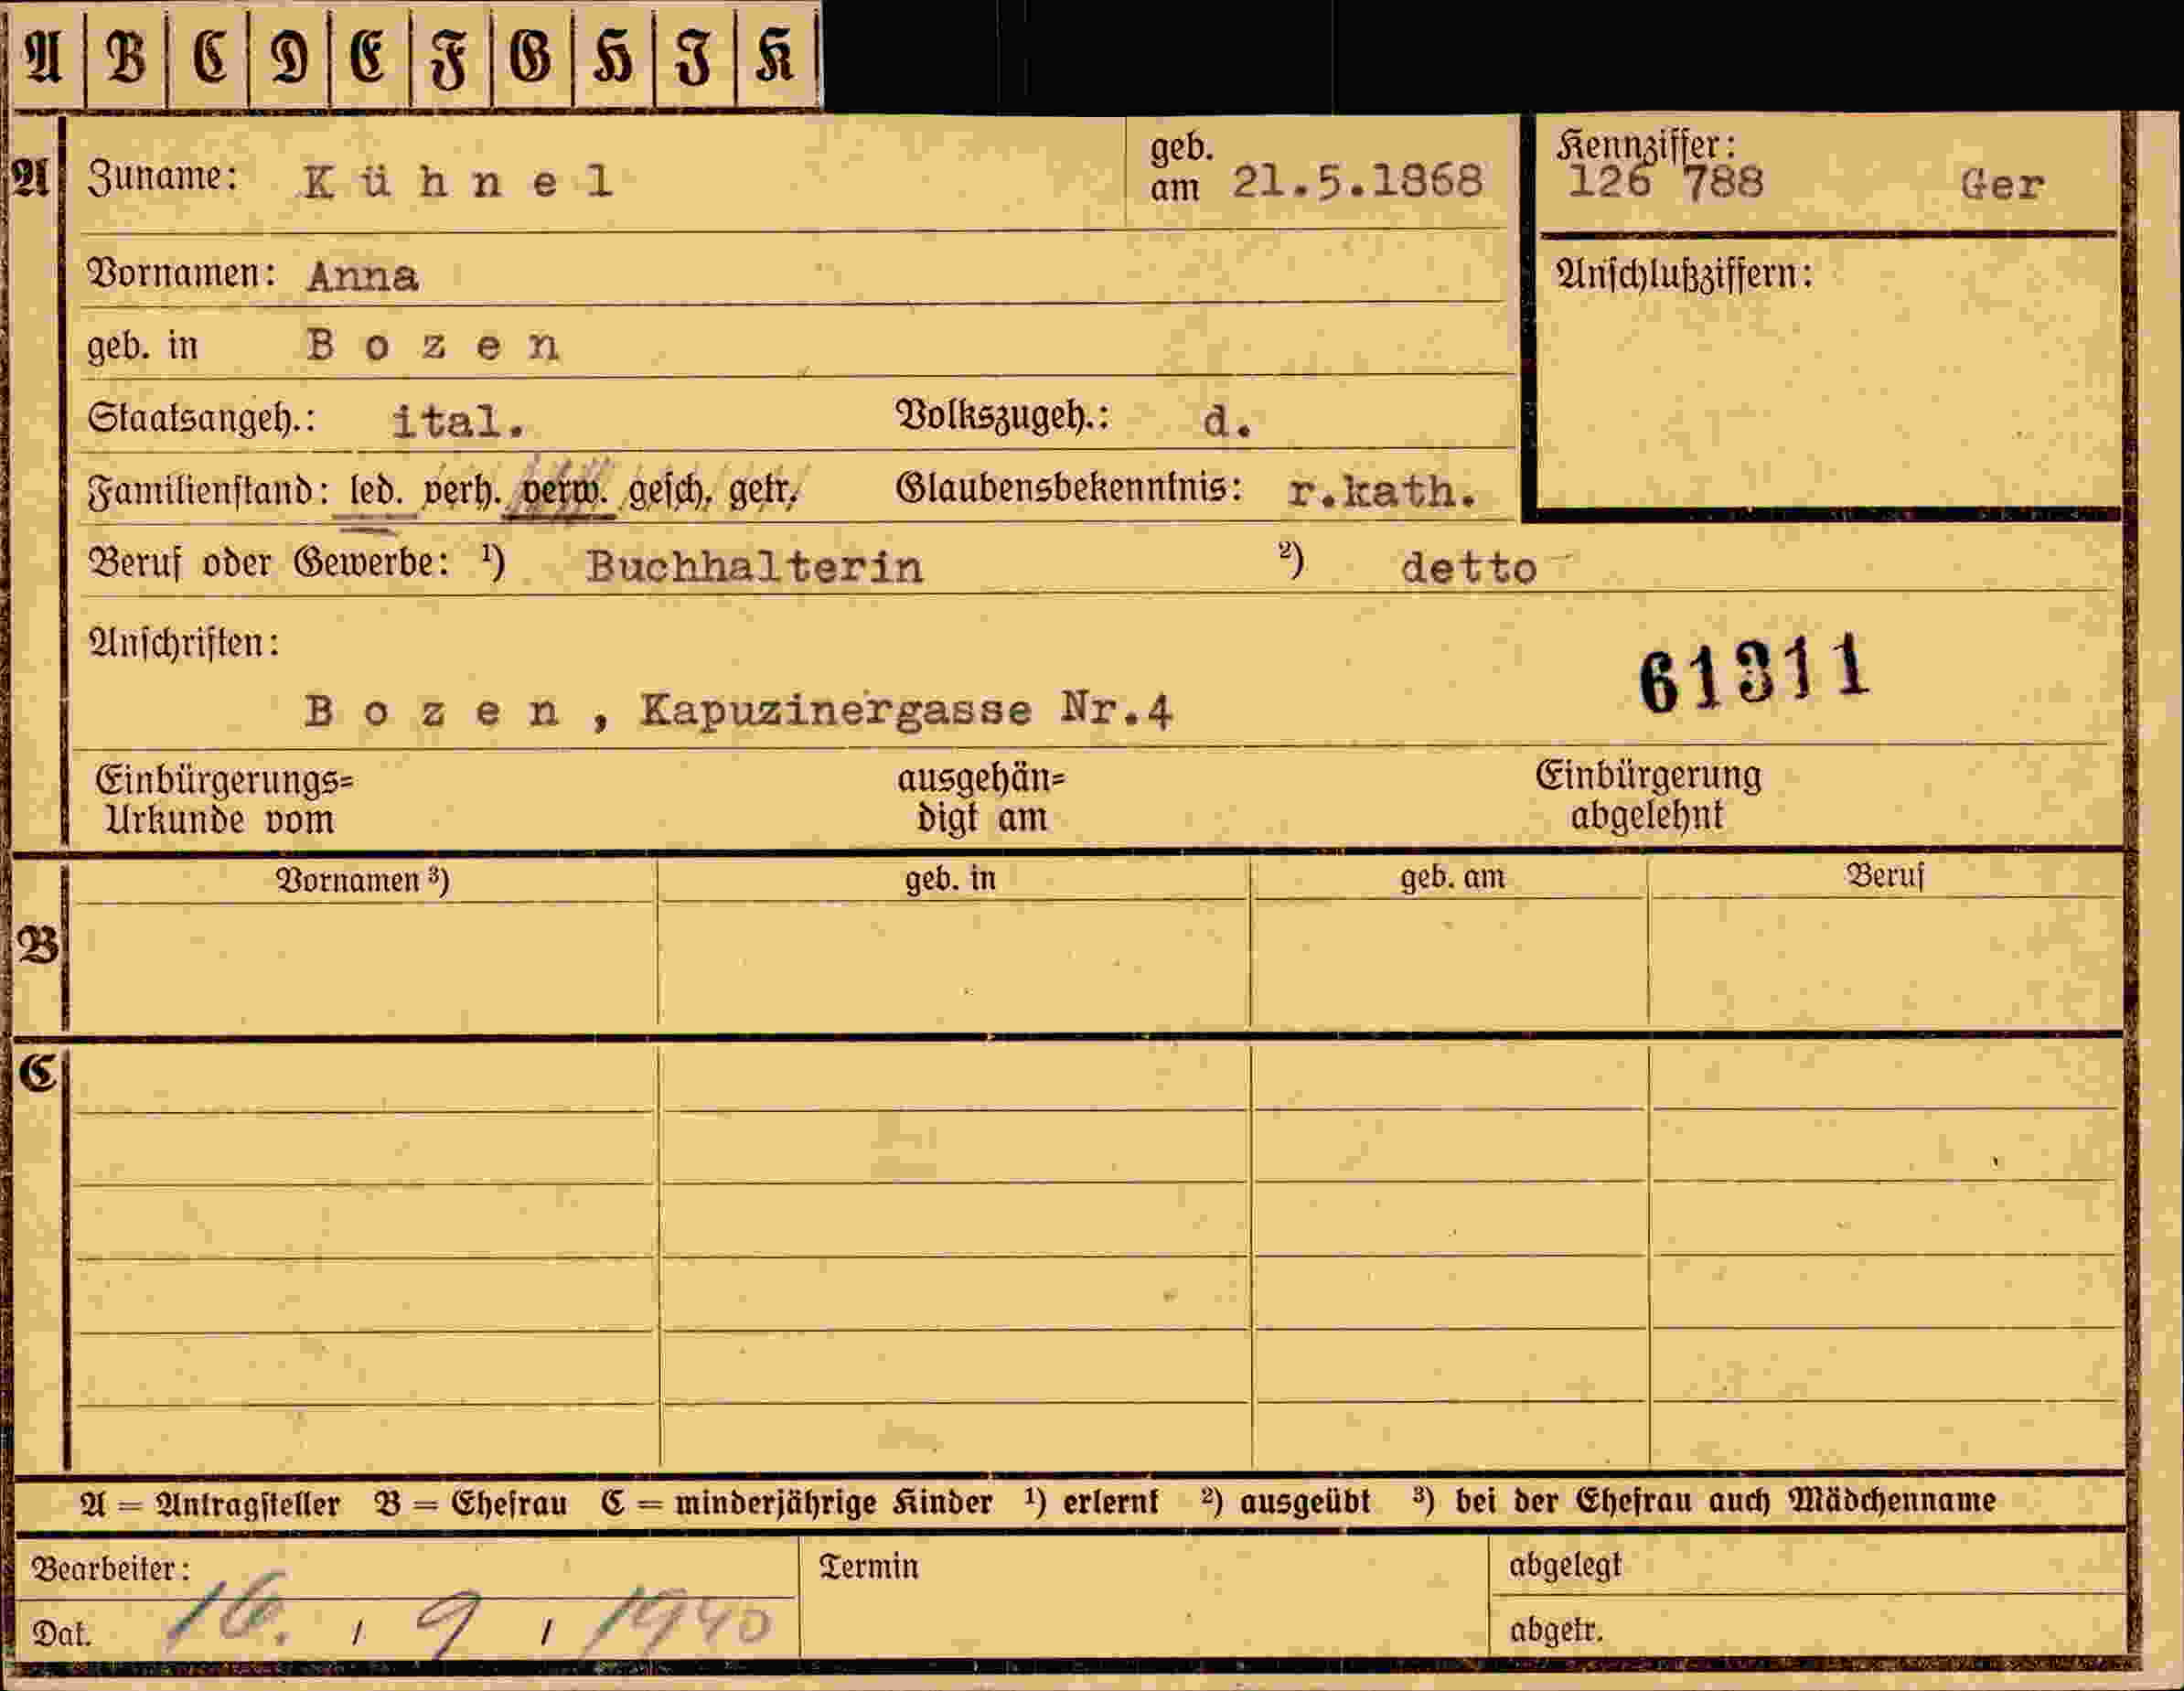 A B C D E F G H I K
A Zuname: Kühnel geb. am 21.5.1868 Kennziffer: 126 788 Ger
Vornamen: Anna Anschlußziffern:
geb. in Bozen
Staatsangeh.: ital. Volkszugeh.: d.
Familienstand: led. verh. verw. gesch. getr. Glaubensbekenntnis: r.kath.
Beruf oder Gewerbe: ¹) Buchhalterin ²) detto
Anschriften:
61311
Bozen, Kapuzinergasse Nr.4
Einbürgerungs= ausgehän= Einbürgerung
Urkunde vom digt am abgelehnt
Vornamen ³) geb. in geb. am Beruf
B
C
A = Antragsteller B = Ehefrau C = minderjährige Kinder ¹) erlernt ²) ausgeübt ³) bei der Ehefrau auch Mädchenname
Bearbeiter: Termin abgelegt
Dat. 16. / 9 / 1940 abgetr.